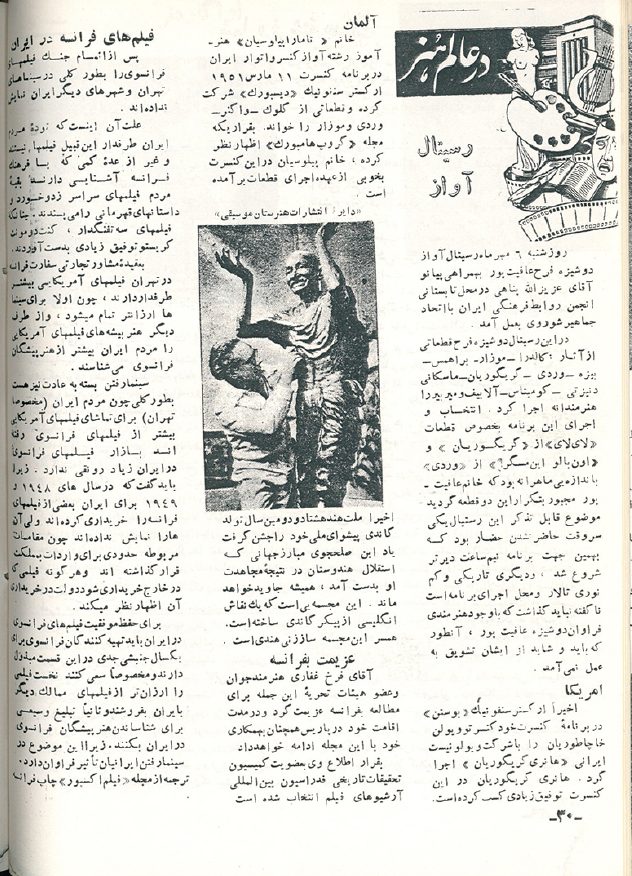 در عالم هنر
رسیتال
آواز
روز شنبه ۶ مهر ماه رسیتال آواز
دوشیزه فرح عافیت پور بهمراهی پیانو
آقای عزیزالله پناهی در محل تابستانی
انجمن روابط فرهنگی ایران با اتحاد
جماهیر شوروی بعمل آمد.
در این رسیتال دوشیزه فرح قطعاتی
از آثار: کالدرا ـ موزار ـ براهمس ـ
بیزه ـ وردی ـ گریگوریان ـ ماسکانی
دنیزتی ـ کومیتاس ـ آلابیف و میربیر را
هنرمندانه اجرا کرد. انتخاب و
اجرای این برنامه بخصوص قطعات
«لالای» از «گریگوریان» و
«اون بالو این مسگر؟» از «وردی»
باندازه‌ای ماهرانه بود که خانم عافیت ـ
پور مجبور بتکرار این دو قطعه گردید
موضوع قابل تذکر این رسیتال یکی
سر وقت حاضر نشدن حضار بود که
بهمین جهت برنامه نیمساعت دیرتر
شروع شد، و دیگری تاریکی و کم
نوری تالار و محل اجرای برنامه است
ناگفته نباید گذاشت که با وجود هنرمندی
فراوان دوشیزه عافیت پور، آنطور
که باید و شاید از ایشان تشویق به
عمل نمی‌آمد.
امریکا
اخیراً ارکستر سنفونیک «بوستن»
در برنامهٔ کنسرت خود کنسرتو ویولن
خاچاطوریان را با شرکت ویولونیست
ایرانی «هانری گریگوریان» اجرا
کرد. هانری گریگوریان در این
کنسرت توفیق زیادی کسب کرده است.
ـ۳۰ـ
آلمان
خانم «تامارا پیلوسیان» هنر ـ
آموز رشته آواز کنسرواتوار ایران
در برنامه کنسرت ۱۱ مارس ۱۹۵۱
ارکستر سنفونیک «دیسبورک» شرکت
کرده و قطعاتی از گلوک ـ واگنر ـ
وردی و موزار را خواند. بقراریکه
مجله «گروب هامبورک» اظهار نظر
کرده، خانم پیلوسیان در این کنسرت
بخوبی از عهده اجرای قطعات برآمده
است.
«دایرهٔ انتشارات هنرستان موسیقی»
اخیراً ملت هند هشتاد و دومین سال تولد
گاندی پیشوای ملی خود را جشن گرفت
یاد این صلحجوی مبارز جهانی که
استقلال هندوستان در نتیجهٔ مجاهدت
او بدست آمد، همیشه جاوید خواهد
ماند. این مجسمه‌یی است که یک نقاش
انگلیسی از پیکر گاندی ساخته است.
همسر این مجسمه ساز زنی هندی است.
عزیمت بفرانسه
آقای فرخ غفاری هنرمند جوان
و عضو هیئت تحریهٔ این جمله برای
مطالعه بفرانسه عزیمت کرد و در مدت
اقامت خود در پاریس همچنان بهمکاری
خود با این مجله ادامه خواهد داد
بقرار اطلاع وی بعضویت کمیسیون
تحقیقات تاریخی فدراسیون بین‌المللی
آرشیوهای فیلم انتخاب شده است
فیلم‌های فرانسه در ایران
پس از اتمام جنگ فیلمهای
فرانسوی را بطور کلی در سینماهای
تهران و شهرهای دیگر ایران نمایش
نداده‌اند.
علت آن اینست که تودهٔ مردم
ایران طرفدار این قبیل فیلمها نیستند
و غیر از عدهٔ کمی که با فرهنگ
فرانسه آشنایی دارند بقیهٔ
مردم فیلمهای سراسر زد و خورد و
داستانهای قهرمانی را می‌پسندند. چنانکه
فیلمهای سه تفنگدار، کنت دو مونت
کریستو توفیق زیادی بدست آوردند.
بعقیدهٔ مشاور تجارتی سفارت فرانسه
در تهران فیلمهای آمریکایی بیشتر
طرفدار دارند، چون اولا برای سینما
ها ارزانتر تمام میشود، و از طرف
دیگر هنرپیشه‌های فیلمهای آمریکایی
را مردم ایران بیشتر از هنرپیشگان
فرانسوی می‌شناسند.
سینما رفتن بسته به عادت نیز هست
بطور کلی چون مردم ایران (مخصوصا
تهران) برای تماشای فیلمهای آمریکایی
بیشتر از فیلمهای فرانسوی رفته
اند بازار فیلمهای فرانسوی
در ایران زیاد رونقی ندارد. زیرا
باید گفت که در سال های ۱۹۴۸ و
۱۹۴۹ برای ایران بعضی از فیلمهای
فرانسه را خریداری کرده‌اند ولی آن
هارا نمایش نداده‌اند چون مقامات
مربوطه حدودی برای واردات بمملکت
قرار گذاشته اند و هر گونه فیلمی که
در خارج خریداری شود دولت در خریداری
آن اظهار نظر میکند.
برای حفظ موفقیت فیلم‌های فرانسوی
در ایران باید تهیه کنندگان فرانسوی برای
یکسال جنبشی جدی در این قسمت مبذول
دارند و مخصوصاً سعی کنند نخست فیلمی
را ارزان‌تر از فیلمهای ممالک دیگر
بایران بفروشند و ثانیاً تبلیغ وسیعی
برای شناساندن هنرپیشگان فرانسوی
در ایران بکنند، زیرا این موضوع در
سینما رفتن ایرانیان تأثیر فراوان دارد.
ترجمه از مجله «فیلم اکسپور» چاپ فرانسه